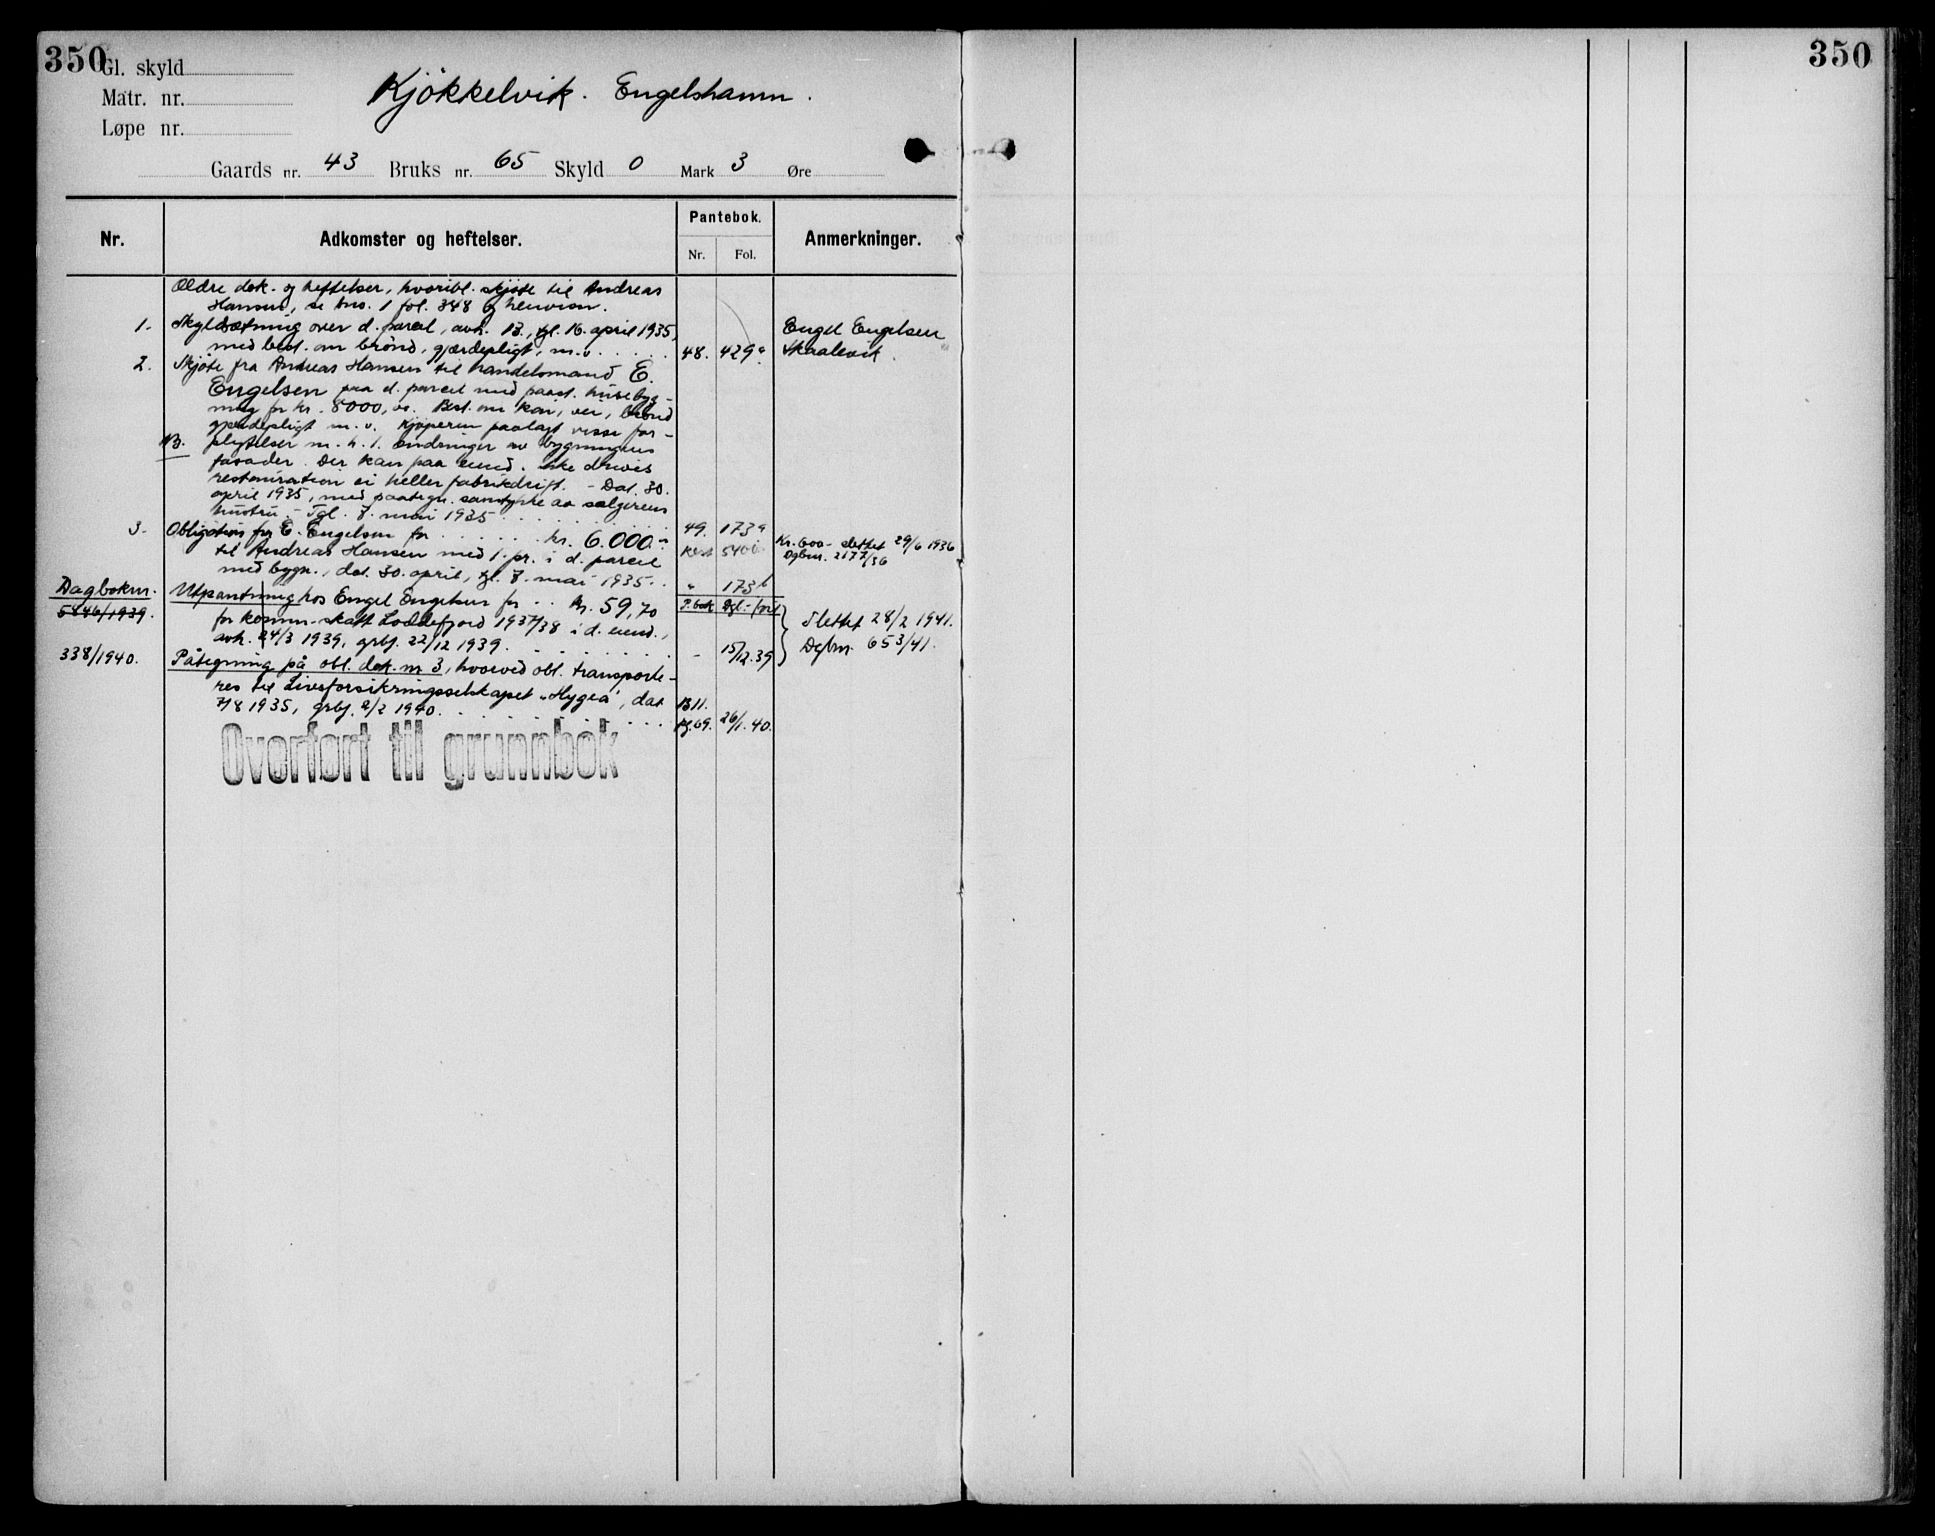 350
350
Gl. skyld
Matr. nr.
Løpe nr.
Kjøkkelvik. Engelshamn.
Gaards nr. 43 Bruks nr. 65 Skyld 0 Mark 3 Øre
Nr. Adkomster og heftelser. Pantebok. Anmerkninger.
Nr. Fol.
Ældre dok. og heftelser, hvoribl. skjøte til Andreas
Hansen, se bno. 1 fol. 348 og henvisn.
1. Skyldsætning over d. parcel, avh. 13., tgl. 16. april 1935, Engel Engelsen
med best. om brønd, gjærdepligt, m.v. . . . . . 48. 429a Skaalevik.
2. Skjøte fra Andreas Hansen til handelsmand E.
Engelsen paa d. parcel med paast. husebyg-
ning for kr. 8000,00. Best. om kai, vei, brønd
gjærdepligt m.v. Kjøperen paalagt visse for-
NB. pligtelser m.h.t. endringer av bygningens
fasader. Der kan paa eiend. ikke drives
restauration ei heller fabrikdrift. - Dat. 30.
april 1935, med paategn. samtykke av sælgerens
hustru. - Tgl. 7. mai 1935 . . . . . . . . 49. 173a
3. Obligation fra E. Engelsen for . . . . . . kr. 6.000.- Rest 5400 Kr. 600- slettet 29/6 1936
til Andreas Hansen med 1. pr. i d. parcel Dgbnr. 2177/36
med bygn., dat. 30. april, tgl. 7. mai 1935. . " 173b
Dagboknr. Utpantning hos Engel Engelsen for . . kr. 59,70 P.bok Dgl.-ført
5446/1939. for komm.-skatt Loddefjord 1937/38 i d. eiend., Slettet 28/2 1941.
avh. 24/3 1939, grbf. 22/12 1939. . . . . . . - 15/12.39 Dgbnr. 653/41.
338/1940. Påtegning på obl. dok. nr 3, hvorved obl. transporte-
res til Livsforsikringsselskapet "Hygea", dat
7/8 1935, grbf. 2/2 1940. . . . . . . . . B11.
Pg.69. 26/1.40.
Overført til grunnbok